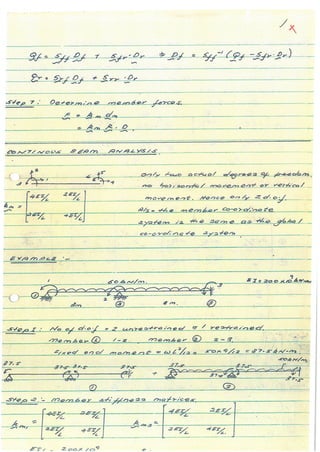 1
Qf = Sff Df + Sfr·Dr ⇒ Df = Sff⁻¹ (Qf - Sfr·Dr)
Qr = Srf Df + Srr·Dr
Step 7: Determine member forces.
CONTINOUS BEAM ANALYSIS.
only two actual degrees of freedom,
no horizontal movement or vertical
movement. Hence only 2 d.o.f.
Also the member co-ordinate
system is the same as the global
co-ordinate system.
km =
4EI/L 2EI/L
2EI/L 4EI/L
EXAMPLE :-
50kN/m.
1 2 3
8m.
Step 1: No of d.o.f = 2 unrestrained & 1 restrained.
member ① 1-2 member ② 2-3.
Fixed end moment = WL²/12
50kN/m
37.5 37.5
① ②
Step 2 :- Member stiffness matrices.
km₁ = 4EI/L 2EI/L km₂ = 4EI/L 2EI/L
2EI/L 4EI/L 2EI/L 4EI/L